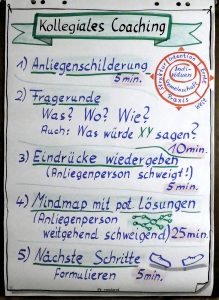 Kollegiales Coaching
1) Anliegenschilderung
5min.
2) Fragerunde
Was? Wo? Wie?
Auch: Was würde XY sagen?
10min.
3) Eindrücke wiedergeben
(Anliegenperson schweigt!)
5min.
4) Mindmap mit pot. Lösungen
(Anliegenperson
weitgehend schweigend) 25min.
5) Nächste Schritte
Formulieren 5min.
Struktur
Intention
Praxis
Werte
Indi-
viduen
Gemeinschaft